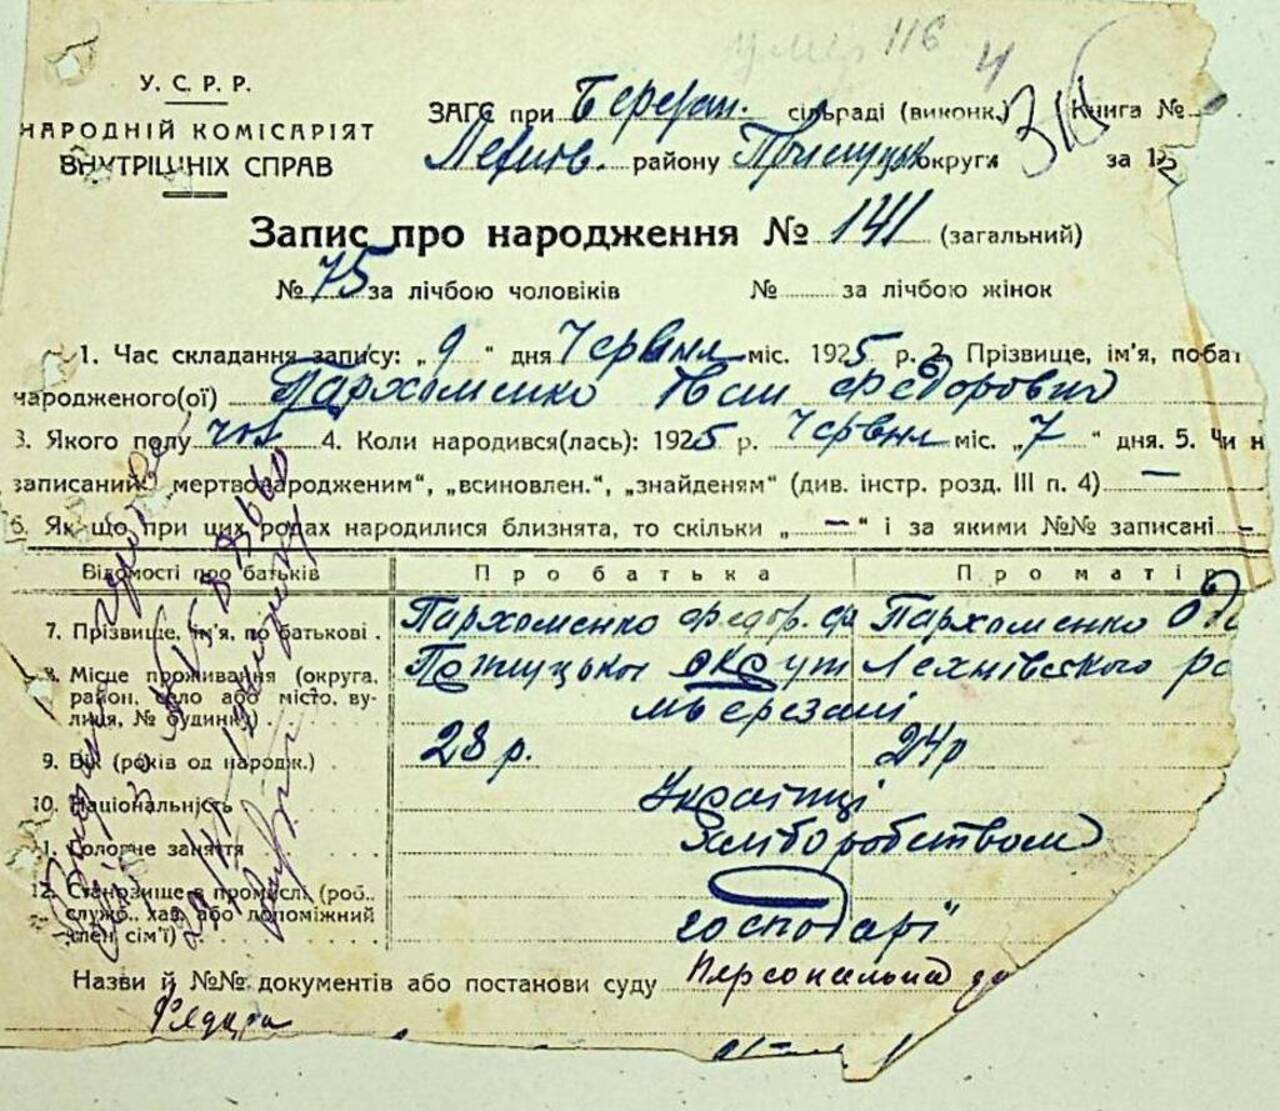 умер 116
4
У. С. Р. Р.
НАРОДНІЙ КОМІСАРІЯТ
ВНУТРІШНІХ СПРАВ
ЗАГС при Березан. сільраді (виконк.) Книга №
району Прилуцьк округи за 192
316
Запис про народження № 141 (загальний)
№ 75 за лічбою чоловіків № за лічбою жінок
1. Час складання запису: „ 9 “ дня Червня міс. 1925 р. 2. Прізвище, ім'я, побат
народженого(ої) Пархоменко Іван Федорович
3. Якого полу чол 4. Коли народився(лась): 1925 р. Червня міс. „7 “ дня. 5. Чи н
записаний „мертвонародженим“, „всиновлен.“, „знайденям“ (див. інстр. розд. III п. 4) —
6. Якщо при цих родах народилися близнята, то скільки „ — “ і за якими №№ записані –
Відомості про батьків Про батька Про матір
7. Прізвище, ім'я, по батькові . Пархоменко Федор. Ф Пархоменко
8. Місце проживання (округа, район, село або місто, вулиця, № будинку) . округи Лехнівского ра
Березані
9. Вік (років од народж.) 28 р. 24 р
10. Національність Українці
11. Головне заняття
12. Становище в промислі (роб., служб., хаз. або допоміжний член сім'ї) . господарі
Назви й №№ документів або постанови суду Персональна за